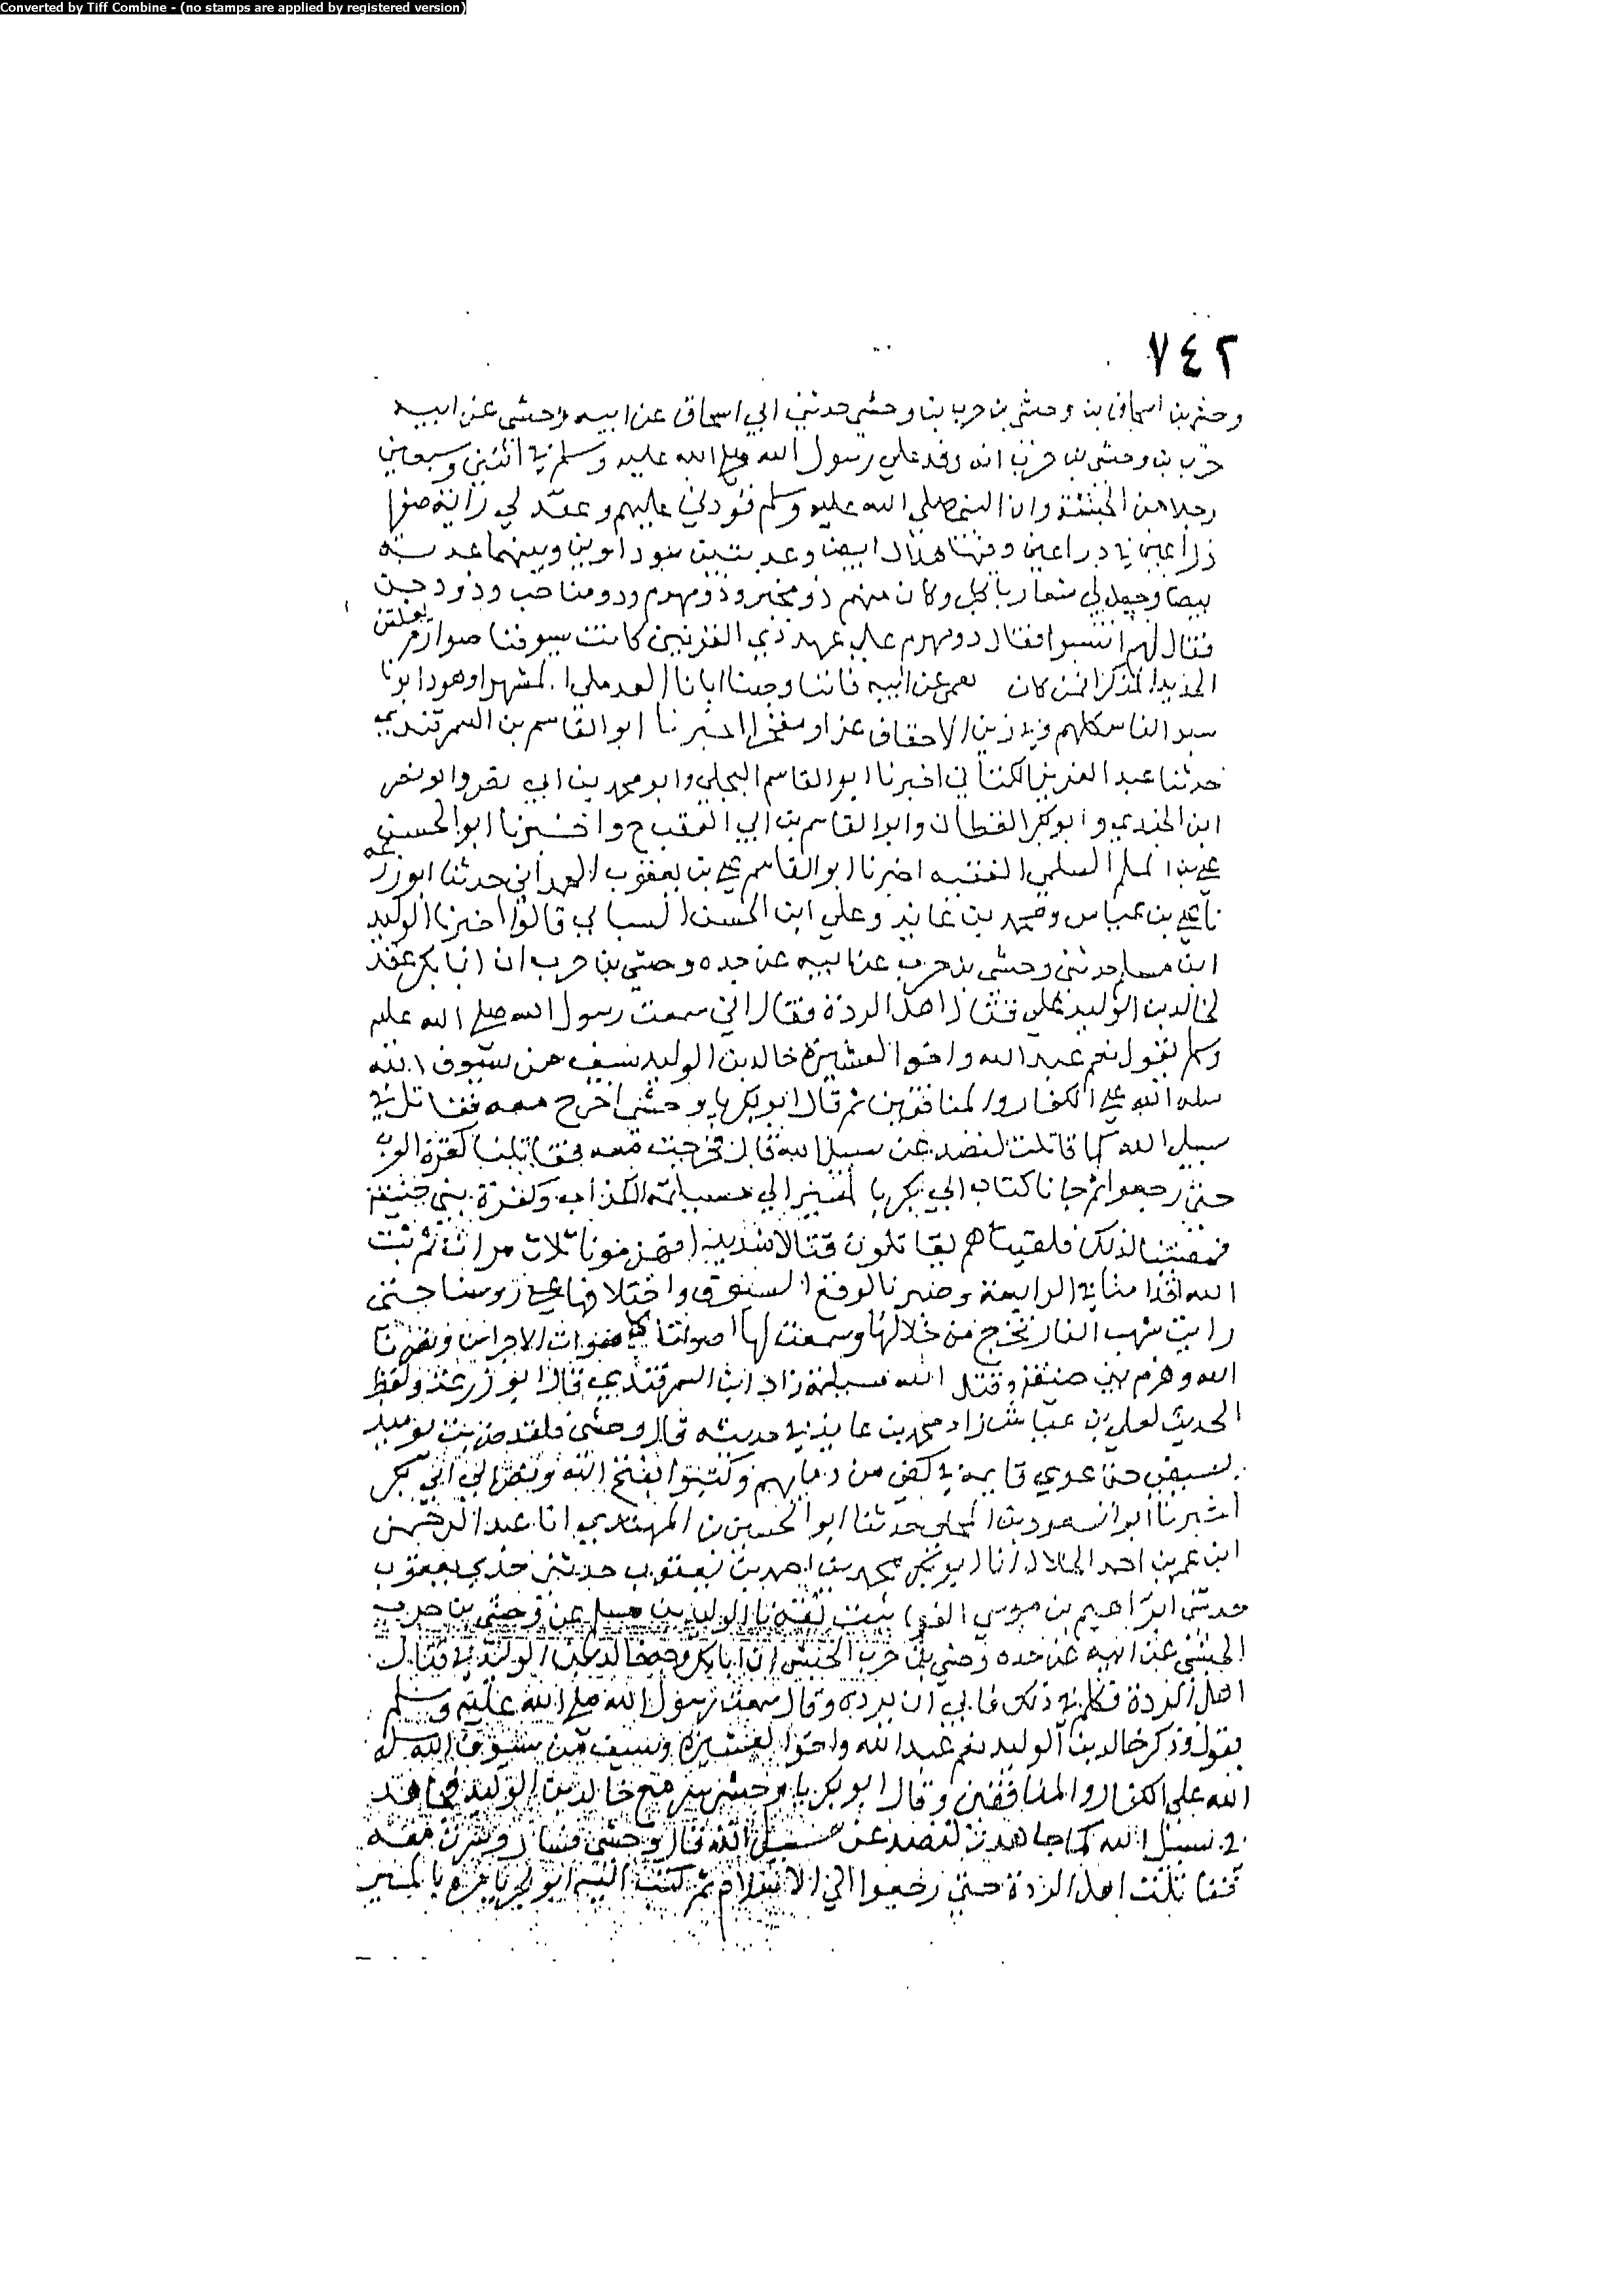 Converted by Tiff Combine - (no stamps are applied by registered version)
٧٤٢
وحشي بن اسحاق بن وحشي بن حرب بن وحشي حدثني ابي اسحاق عن ابيه وحشي عن ابيه
حرب بن وحشي بن حرب انه وفد علي رسول الله صلى الله عليه وسلم في اثنين وسبعين
رجلا من الحبشة وان النبي صلي الله عليه وسلم قودني عليهم وعقد لي راية صفرا
ذراعين في ذراعين وفيها هلال ابيض وعذبتين سوداوين وبينهما عذبة
بيضا وجعل لي شعار يا كل وكان منهم ذو مخبر وذو مهرم وذو مناحب وذو دجن
فقال لهم انتسبوا فقال ذو مهرم علي عهد ذي القرنين كانت سيوفنا صوارم يفلقن
الحديد المذكرا فمن كان يعمى عن ابيه فاننا وجدنا ابانا العدملي المشهرا وهود ابونا
سيد الناس كلهم وفي زمن الاحقاف عزا ومفخرا اخبرنا ابو القاسم بن السمرقندي
حدثنا عبد العزيز الكتاني اخبرنا ابو القاسم البجلي وابو محمد بن ابي نصر وابو نصر
ابن الجندي وابو بكر القطان وابو القاسم بن ابي العقب ح واخبرنا ابو الحسن
علي بن المسلم السلمي الفقيه اخبرنا ابو القاسم علي بن يعقوب الهمداني حدثنا ابو زرعه
نا علي بن عباس ومحمد بن عايذ وعلي ابن الحسن النسابي قالوا اخبرنا الوليد
ابن مسلم حدثني وحشي بن حرب عن ابيه عن جده وحشي بن حرب ان ابا بكر عقد
لخالد بن الوليد علي قتال اهل الردة فقال اني سمعت رسول الله صلى الله عليه
وسلم يقول نعم عبد الله واخو العشيرة خالد بن الوليد سيف من سيوف الله
سله الله علي الكفار والمنافقين ثم قال ابو بكر يا وحشي اخرج معه فقاتل في
سبيل الله كما قاتلت لتصد عن سبيل الله قال فخرجت معه فقاتلنا كفرة العرب
حتى رجعوا ثم جانا كتاب ابي بكر بالمسير الي مسيلمة الكذاب وكفرة بني حنيفة
فمضينا لذلك فلقيناهم يقاتلون قتالا شديدا فهزمونا ثلاث مرات ثم ثبت
الله اقدامنا في الرابعة وصبرنا لوقع السيوف واختلافها علي روسنا حتى
رايت شهب النار تخرج من خلالها وسمعت لها اصواتا كاصوات الاجراس ونصرنا
الله وهزم بني حنيفة وقتل الله مسيلمة زاد ابن السمرقندي قال ابو زرعة ولفظ
الحديث لعلي بن عباس زاد محمد بن عايذ في حديثه قال وحشي فلقد ضربت يوميذ
بسيفي حتى غري قايمه في كفي من دمايهم وكتبوا بفتح الله ونصره الي ابي بكر
اخبرنا ابو السعود بن المجلي حدثنا ابو الحسين بن المهتدي انا عبد الرحمن
ابن عمر بن احمد الخلال انا ابو بكر محمد بن احمد بن يعقوب حدثني جدي يعقوب
حدثني ابراهيم بن موسي الفرا ثبت ثقة نا الوليد بن مسلم عن وحشي بن حرب
الحبشي عن ابيه عن جده وحشي بن حرب الحبشي ان ابا بكر وجه خالد بن الوليد في قتال
اهل الردة فكلم في ذلك فابي ان يرده وقال سمعت رسول الله صلى الله عليه وسلم
يقول وذكر خالد بن الوليد نعم عبد الله واخو العشيرة وسيف من سيوف الله سله
الله علي الكفار والمنافقين وقال ابو بكر يا وحشي سر مع خالد بن الوليد فجاهد
في سبيل الله كما جاهدت لتصد عن سبيل الله قال وحشي فسار وسرت معه
فقاتلت اهل الردة حتى رجعوا الي الاسلام ثم كتب اليه ابو بكر يامره بالمسير